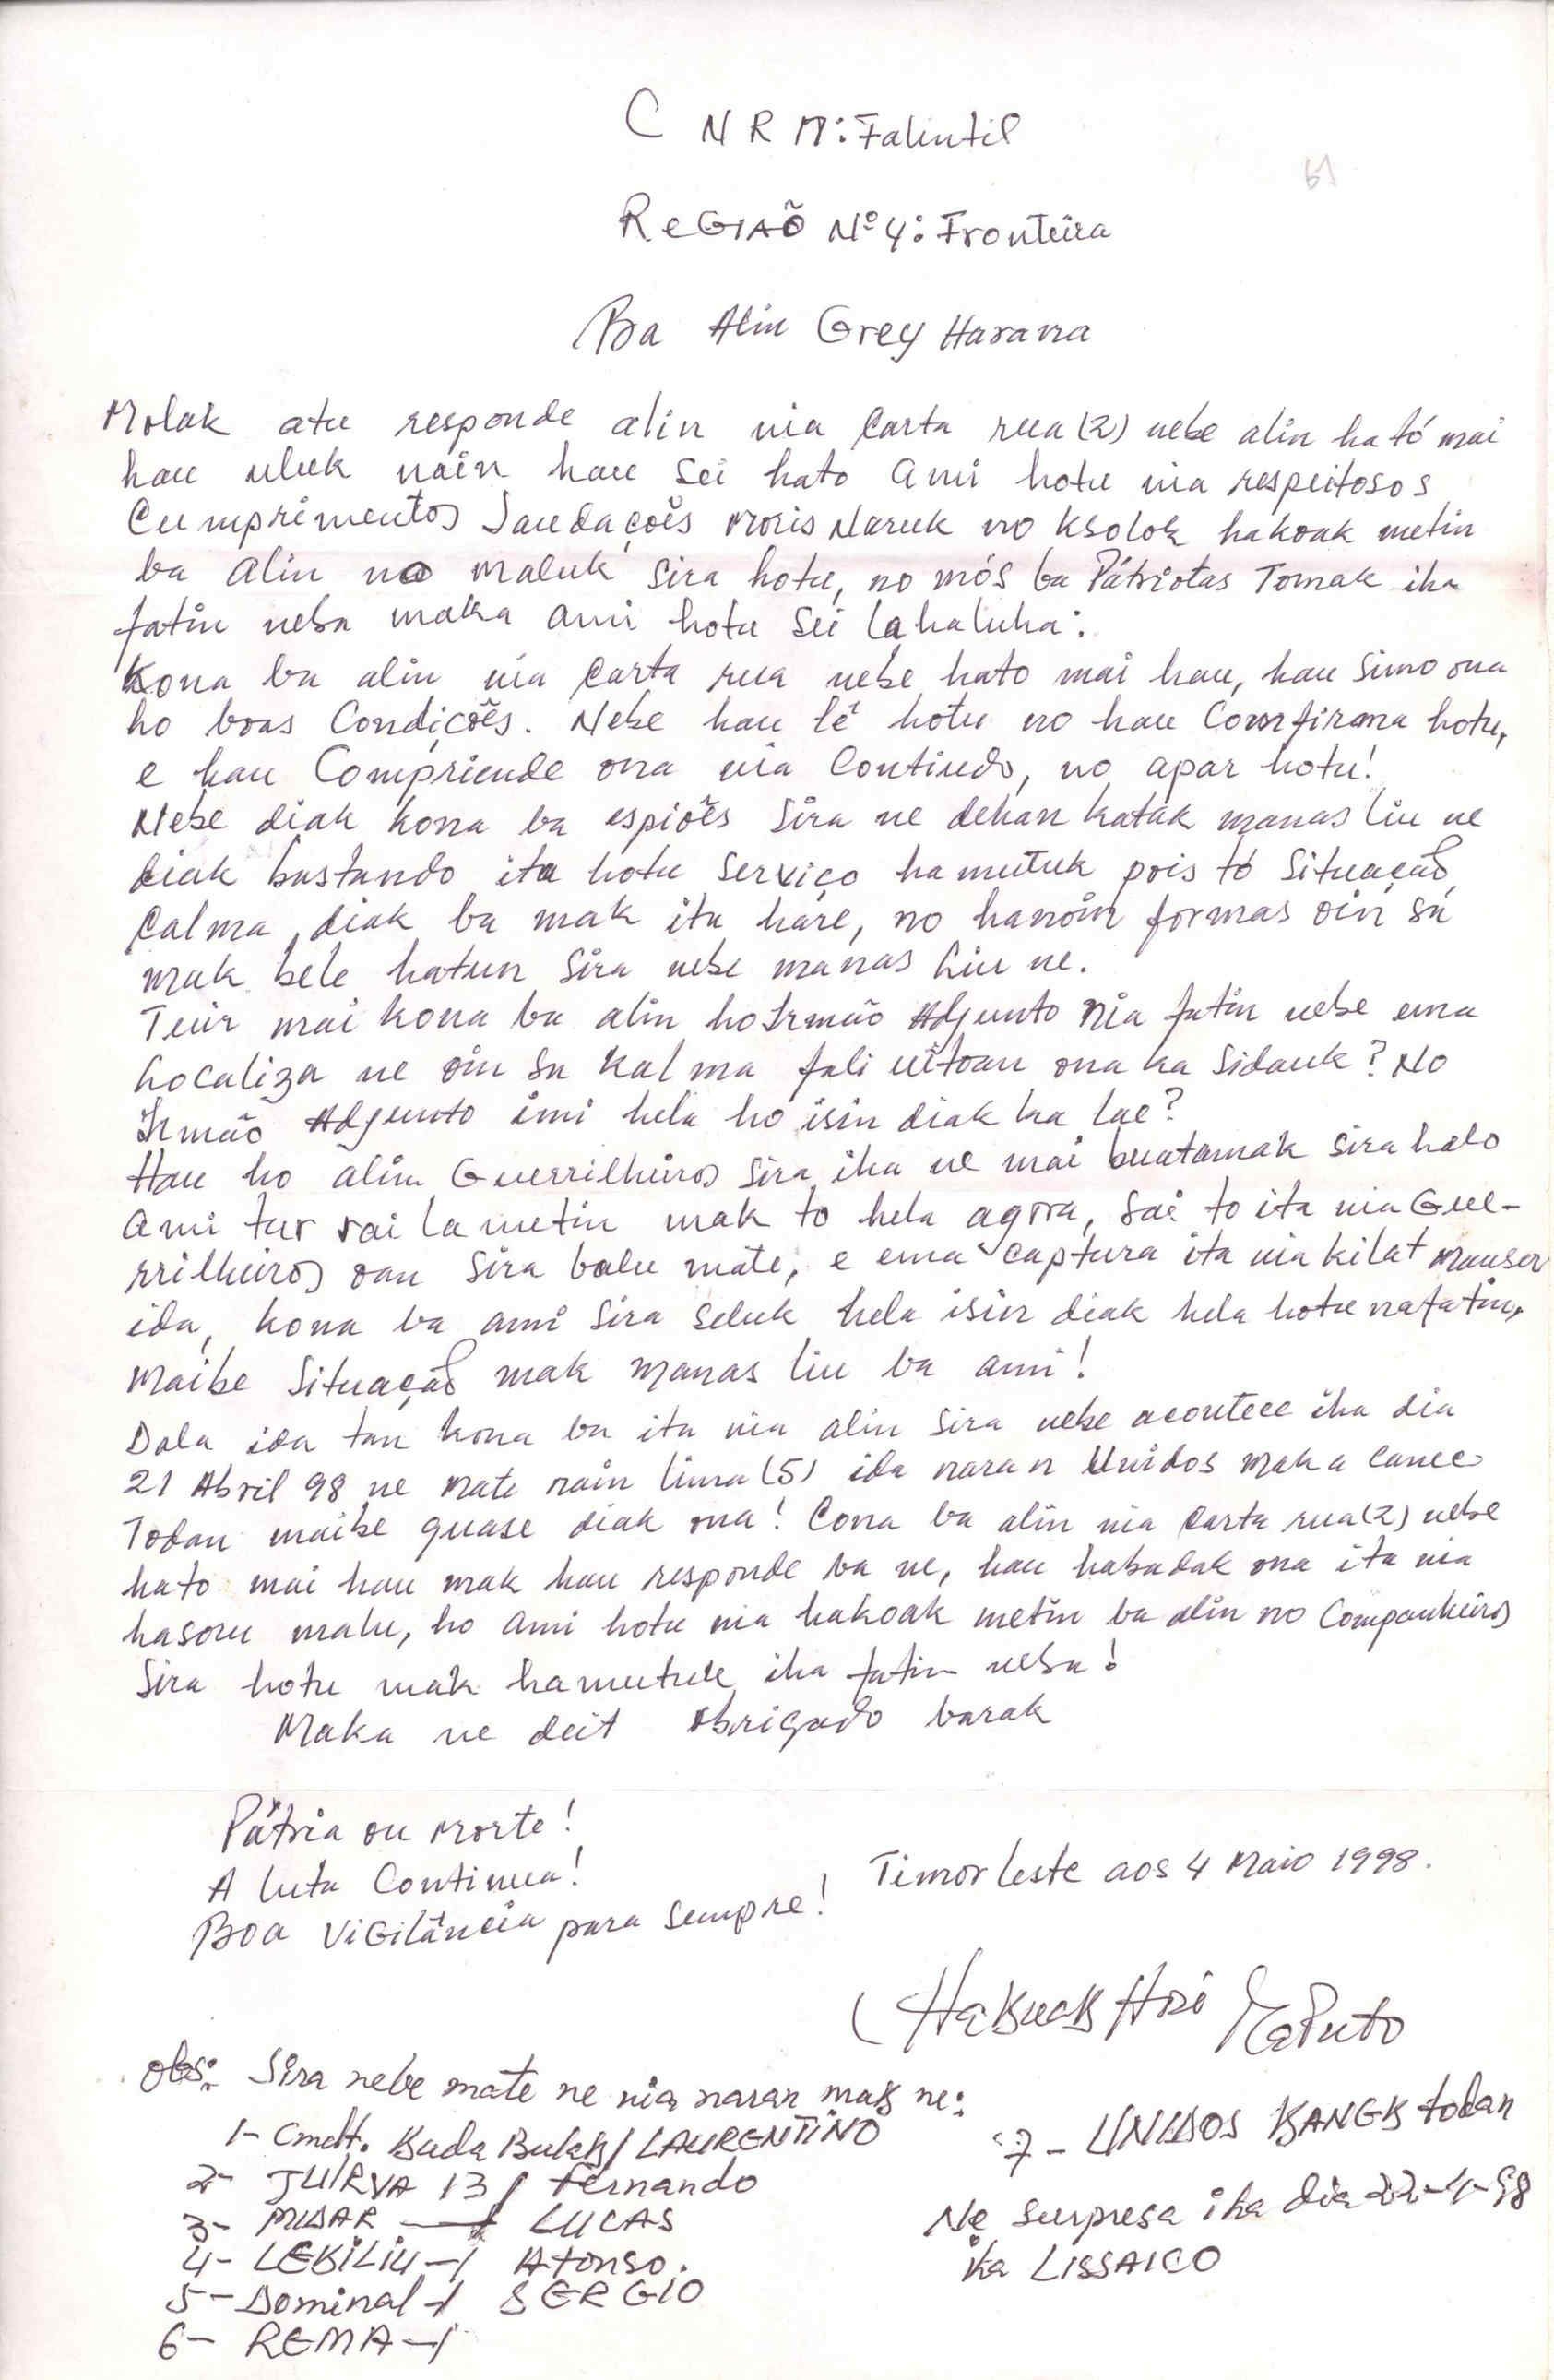 C N R M: Falintil
REGIAÕ Nº 4: Fronteira
Ba Alin Grey Harana
Molok atu responde alin nia Carta rua (2) nebe alin ható mai
hau uluk nain hau sei hato Ami hotu nia respeitosos
Cumprimentos Saudações Moris Naruk no Ksolok hakoak metin
ba Alin no maluk sira hotu, no mós ba Pátriotas Tomak iha
fatin neba maka Ami hotu sei lahaluha:
Kona ba alin nia Carta rua nebe hato mai hau, hau simo ona
ho boas Condições. Nebe hau lê hotu no hau Comfirma hotu,
e hau Compriende ona nia Contiudo, no apar hotu!
Nebe diak kona ba espiões sira ne dehan katak manas liu ne
diak bastando ita hotu Serviço hamutuk pois tó Situação
Calma, diak ba mak ita háre, no hanoin formas oin sá
mak bele hatun sira nebe manas liu ne.
Tuir mai kona ba alin ho Irmão Adjunto nia fatin nebe ema
Localiza ne oin sa Kalma fali uitoan ona ka Sidauk? No
Irmão Adjunto imi hela ho isin diak ka lae?
Hau ho alin Guerrilheiros sira iha ne mai buatamak sira halo
Ami tur rai la metin mak to hela agora, sai to ita nia Gue-
rrilheiros oan sira balu mate, e ema captura ita nia kilat Mauser
ida, kona ba ami sira seluk hela isin diak hela hotu nafatin,
Maibe Situação mak manas liu ba ami!
Dala ida tan kona ba ita nia alin sira nebe acontece iha dia
21 Abril 98 ne Mate nain lima (5) ida naran Unidos maka canec
Todan maibe quase diak ona! Cona ba alin nia Carta rua (2) nebe
hato mai hau mak hau responde ba ne, hau habadak ona ita nia
hasoru malu, ho Ami hotu nia hakoak metin ba alin no Companheiros
Sira hotu mak hamutuk iha fatin neba!
Maka ne deit Obrigado barak
Pátria ou Morte!
A luta Continua!
Boa ViGilância para sempre!
Timor Leste aos 4 Maio 1998.
Obs: Sira nebe mate ne nia naran mak ne:
1- Cmdt. Buda Bulak / LAURENTINO
2- JUIRVA 13 / Fernando
3- MUDAR —/ LUCAS
4- LEKILIU —/ Afonso.
5- Dominal —/ SERGIO
6- REMA —/
7- UNIDOS KANEK todan
Ne Surpresa iha dia 22-4-98
iha LISSAICO